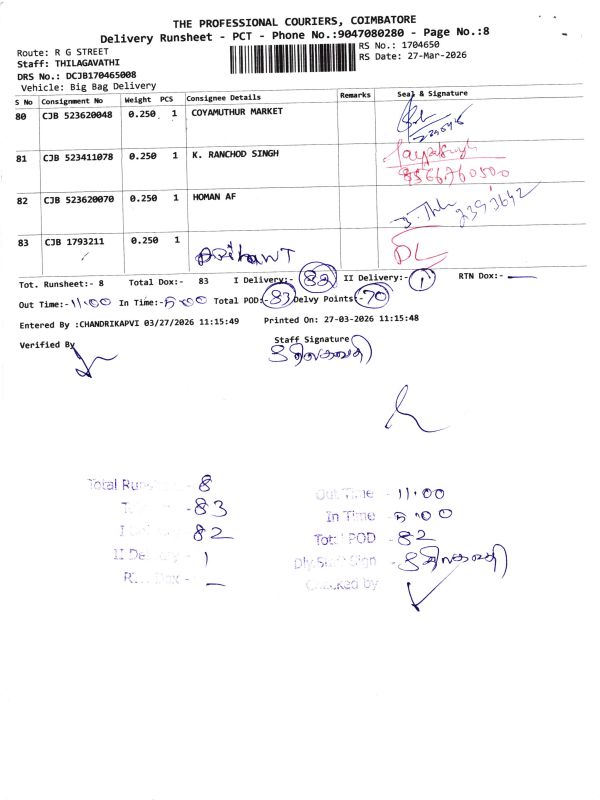 THE PROFESSIONAL COURIERS, COIMBATORE
Delivery Runsheet - PCT - Phone No.:9047080280 - Page No.:8
Route: R G STREET
RS No.: 1704650
Staff: THILAGAVATHI
RS Date: 27-Mar-2026
DRS No.: DCJB170465008
Vehicle: Big Bag Delivery
S No Consignment No Weight PCS Consignee Details Remarks Seal & Signature
80 CJB 523620048 0.250 1 COYAMUTHUR MARKET
81 CJB 523411078 0.250 1 K. RANCHOD SINGH
9566760500
82 CJB 523620070 0.250 1 HOMAN AF
2393642
83 CJB 1793211 0.250 1 ARihanT DL
Tot. Runsheet:- 8 Total Dox:- 83 I Delivery:- 82 II Delivery:- 1 RTN Dox:- —
Out Time:- 11:00 In Time:- 5:00 Total POD:- 83 Delvy Points:- 70
Entered By :CHANDRIKAPVI 03/27/2026 11:15:49 Printed On: 27-03-2026 11:15:48
Verified By
Staff Signature
திலகவதி
Total Runsheet - 8
83
I Delivery - 82
II Delivery - 1
RTN Dox - —
Out Time - 11:00
In Time - 5:00
Total POD - 82
Dly.Staff Sign - திலகவதி
Checked by